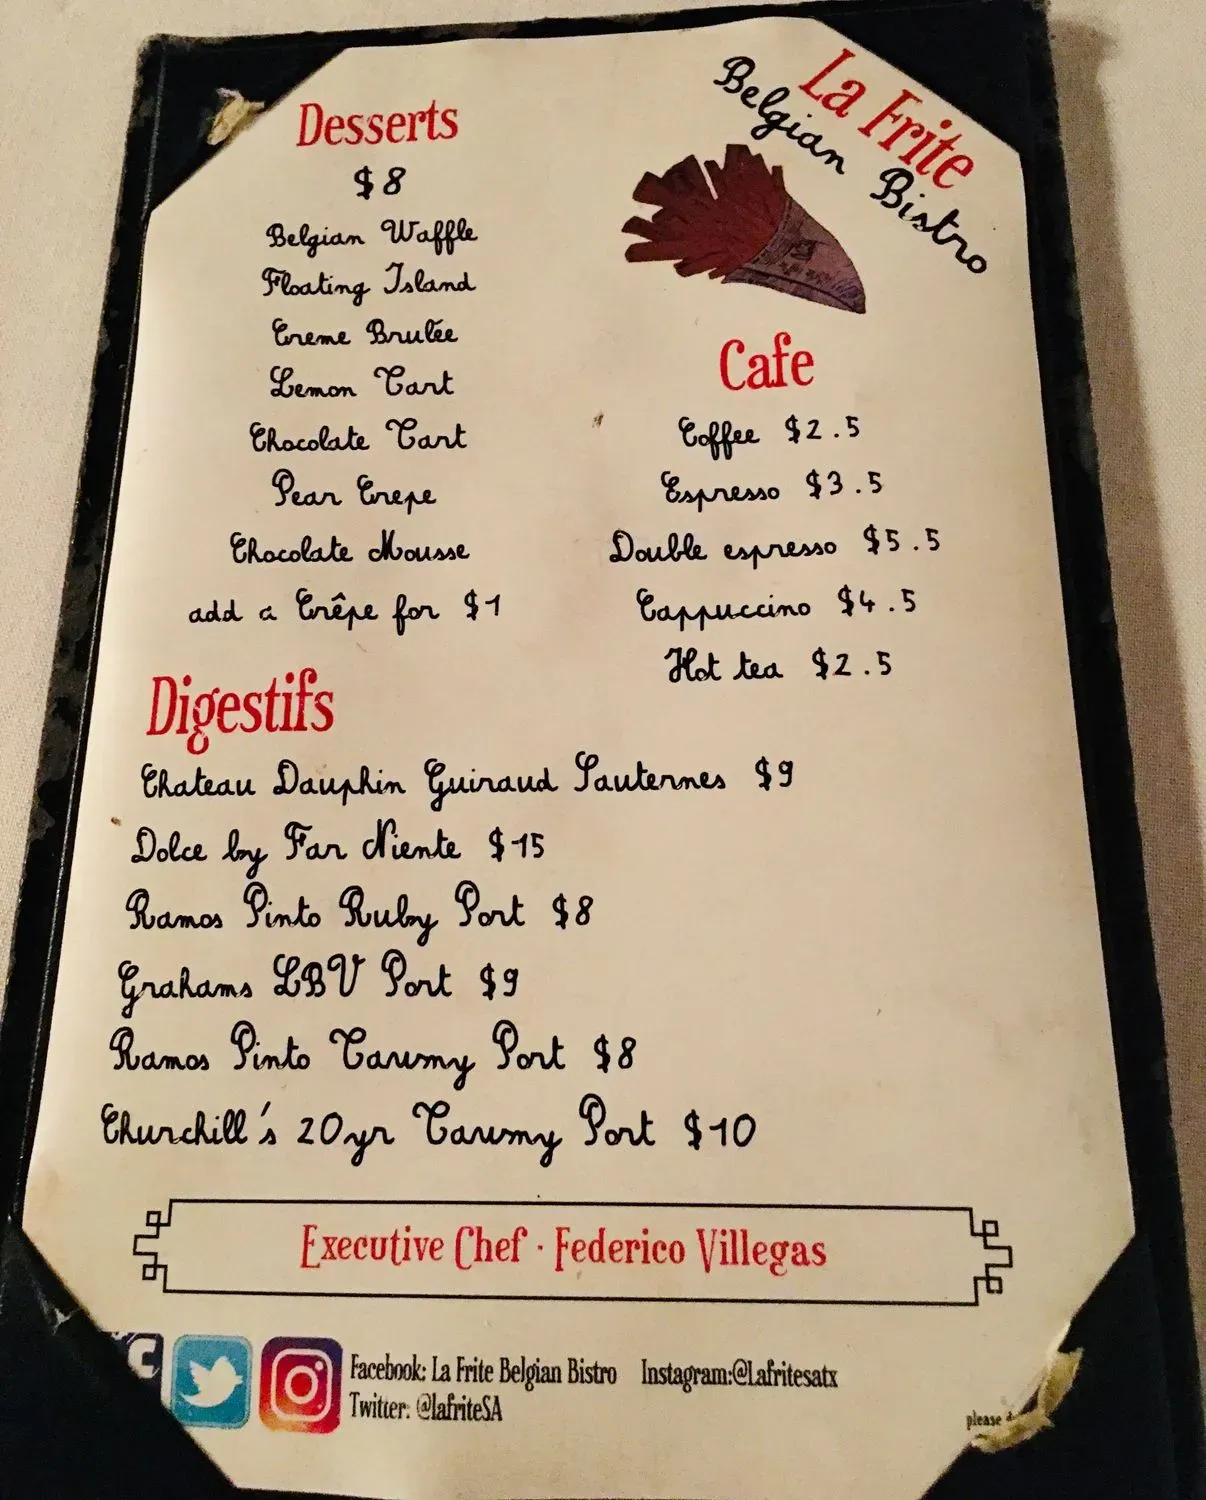 La Frite
Belgian Bistro
Desserts
$8
Belgian Waffle
Floating Island
Creme Brulée
Lemon Tart
Chocolate Tart
Pear Crepe
Chocolate Mousse
add a Crêpe for $1
Cafe
Coffee $2.5
Espresso $3.5
Double espresso $5.5
Cappuccino $4.5
Hot tea $2.5
Digestifs
Chateau Dauphin Guiraud Sauternes $9
Dolce by Far Niente $15
Ramos Pinto Ruby Port $8
Grahams LBV Port $9
Ramos Pinto Tawny Port $8
Churchill's 20yr Tawny Port $10
Executive Chef · Federico Villegas
Facebook: La Frite Belgian Bistro Instagram:@Lafritesatx
Twitter: @lafriteSA
please